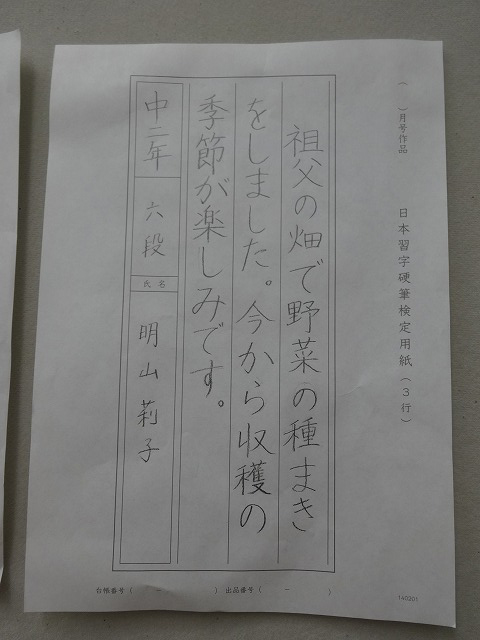 （　　）月号作品
日本習字硬筆検定用紙（３行）
祖父の畑で野菜の種まき
をしました。今から収穫の
季節が楽しみです。
中二年
六段
氏名
明山莉子
台帳番号（　　－　　）　出品番号（　　－　　）
140201